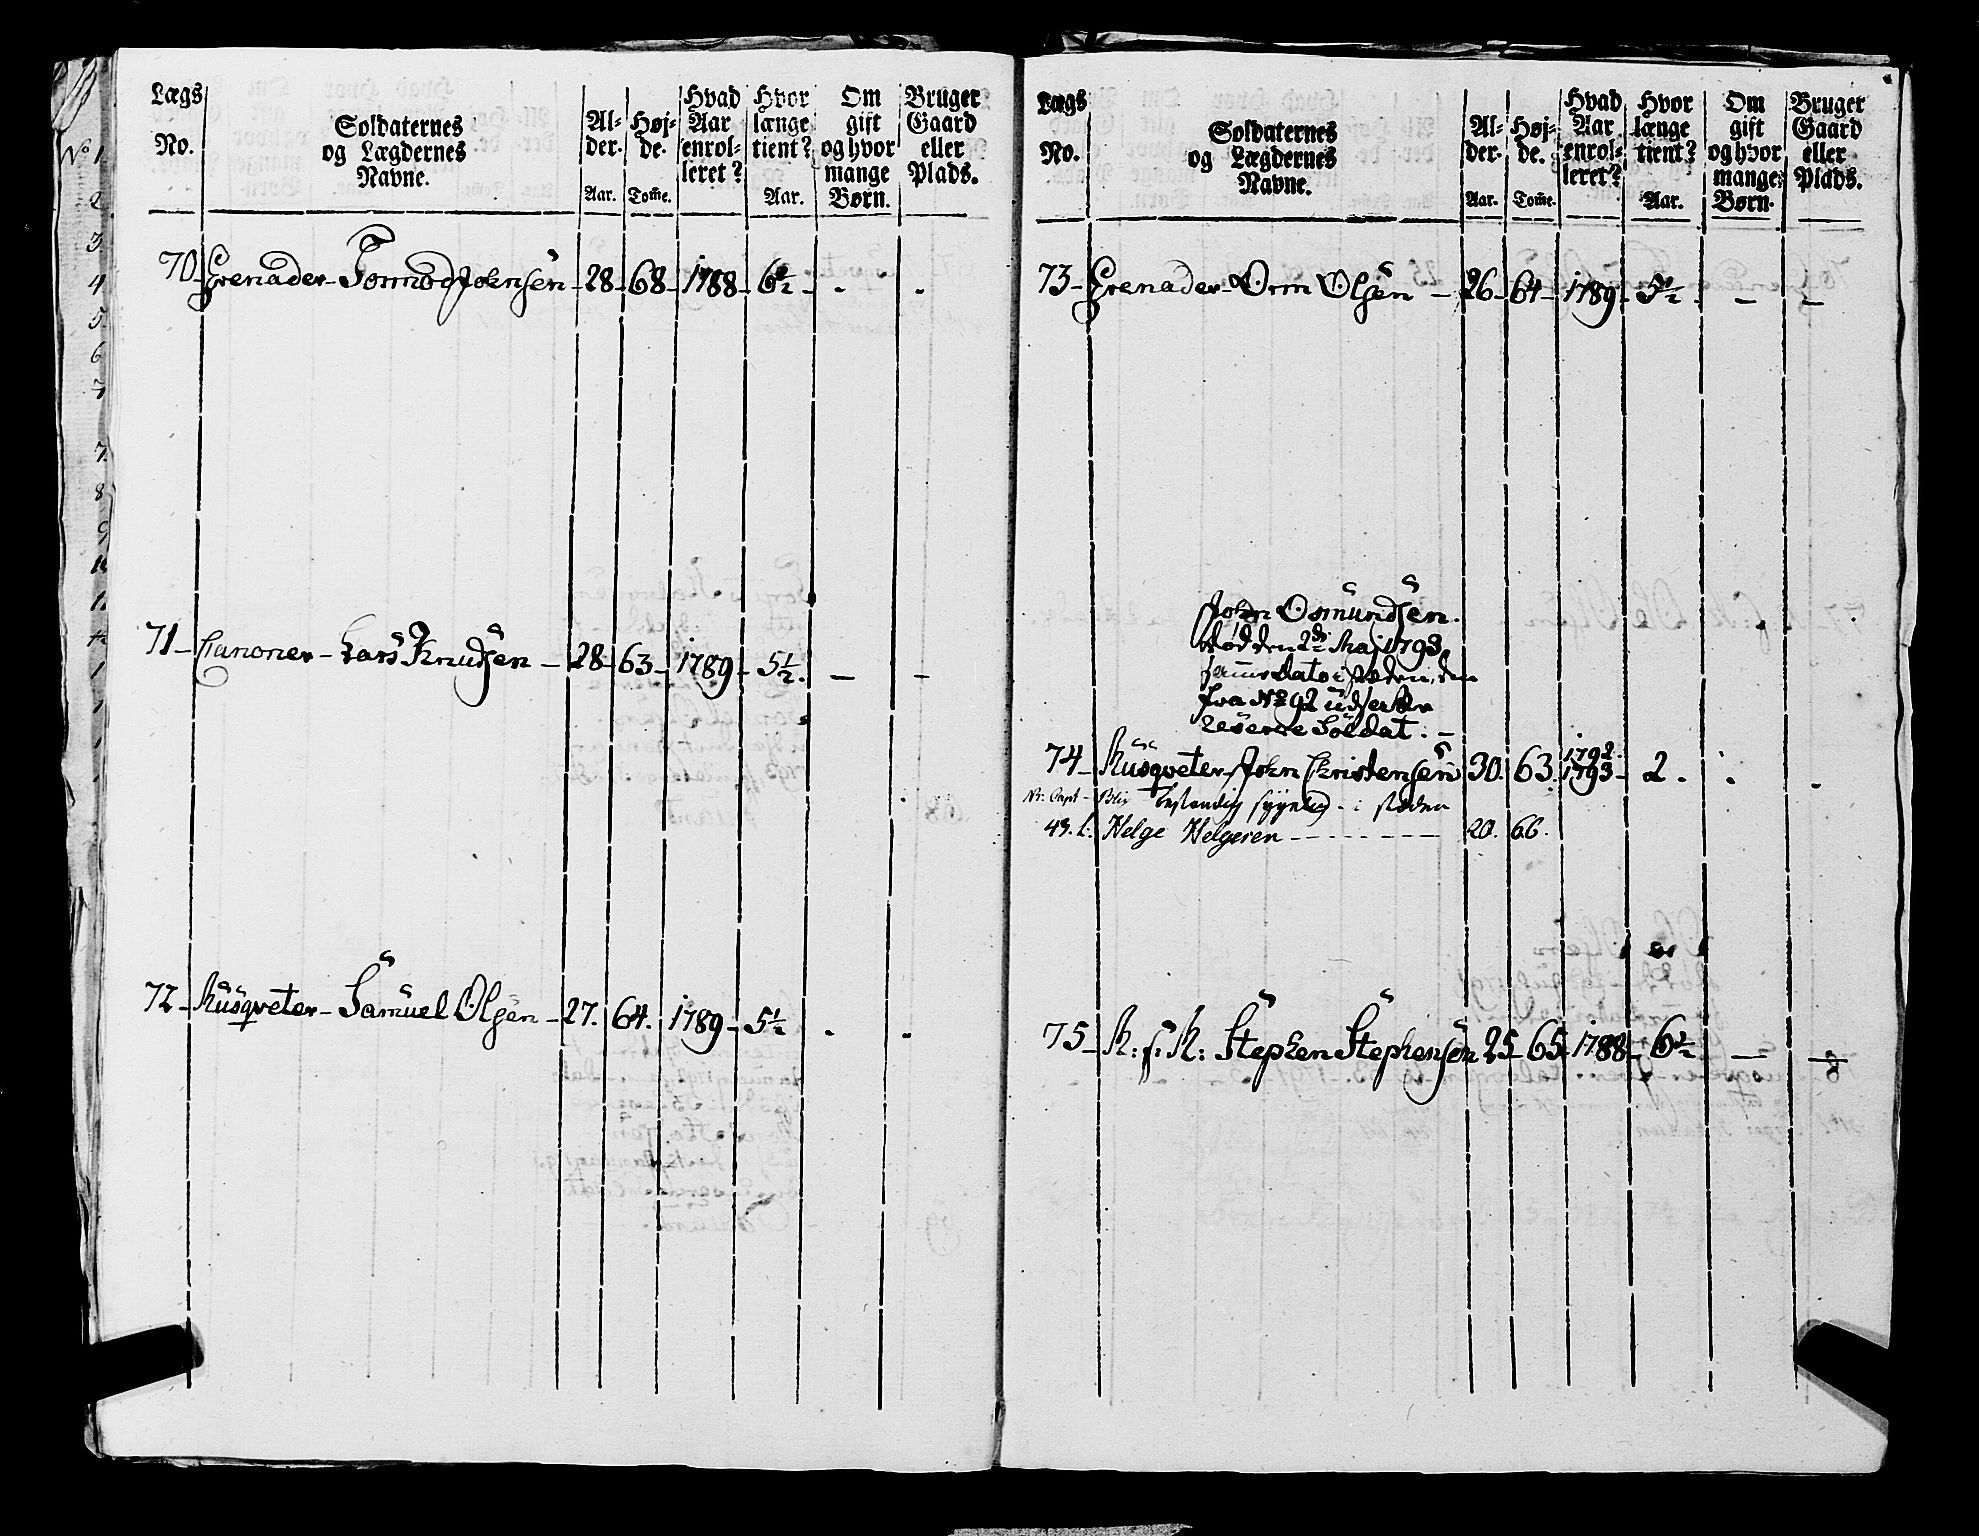 Lægs No. | Soldaternes og Lægdernes Navne. | Al-der. Aar. | Høj-de. Tom̄e. | Hvad Aar enrol-leret? | Hvor længe tient? Aar. | Om gift og hvor mange Børn. | Bruger Gaard eller Plads.
70 - Grenader - Tormod Johnsen - 28 - 68 - 1788 - 6½ - - -
71 - Canoner - Lars Knudsen - 28 - 63 - 1789 - 5½. - -
72 - Musqveter - Samuel Olsen - 27. 64. 1789 - 5½ - -
Lægs No. | Soldaternes og Lægdernes Navne. | Al-der. Aar. | Høj-de. Tom̄e. | Hvad Aar enrol-leret? | Hvor længe tient? Aar. | Om gift og hvor mange Børn. | Bruger Gaard eller Plads.
73 - Grenader - Orm Olsen - 26 - 64 - 1789 - 5½ - -
John Osmundsen.
død den 2de Maj 1793
dato i stæden, den
fra No 92
reserve Soldat. -
1792.
74 - Musqveter - John Christensen 30. 63. 1793 - 2.
bestendig sygelig - i stæden
49. L: Helge Helgesen - - - 20. 66.
75 - M: f: M: Stephen Stephensen 25 - 65 - 1788 - 6½ - -
No 1
2
3
4
5
6
7
7.
8